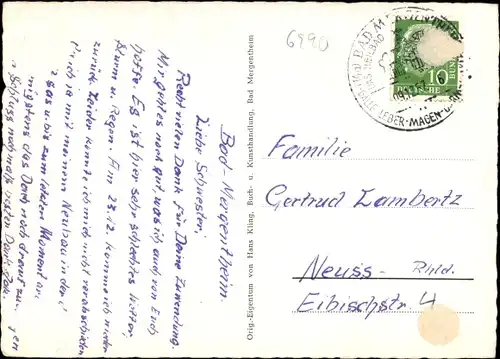 6990
BAD MERGENTHEIM
LEBER-MAGEN-DARM
10
DEUTSCHE BUNDESPOST
Bad-Mergentheim.
Liebe Schwester!
Recht vielen Dank für Deine Zuwendung.
Mir geht es noch gut, was ich auch von Euch
hoffe. Es ist hier sehr schlechtes Wetter,
Sturm u. Regen. Am 23.12. komme ich wieder
zurück. Leider konnte ich mich nicht verabschieden
ich mit meinem Neubau in
das u. bis zum letzten Moment
das Dach noch drauf zu
Schluss nochmals vielen Dank
Orig.-Eigentum von Hans Kling, Buch- u. Kunsthandlung, Bad Mergentheim
Familie
Gertrud Lambertz
Neuss- Rhld.
Eibischstr. 4